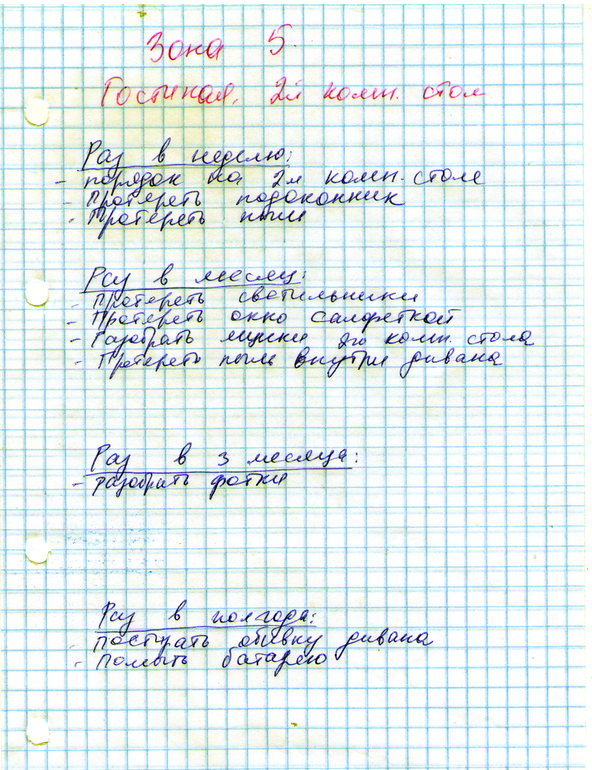 Зона 5
Гостиная, 2й комп. стол
Раз в неделю:
- порядок на 2м комп. столе
- Протереть подоконник
- Протереть пыль
Раз в месяц:
- Протереть светильники
- Протереть окно салфеткой
- Разобрать ящики 2го комп. стола
- Протереть пыль внутри дивана
Раз в 3 месяца:
- разобрать фотки
Раз в полгода:
- постирать обивку дивана
- помыть батарею